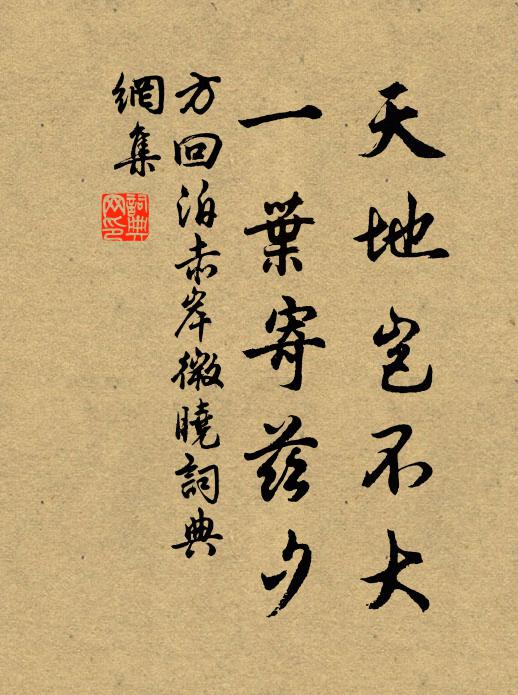 天地岂不大
一葉寄茲夕
方回泊赤岸微曉詞典
網集
詞典
网印